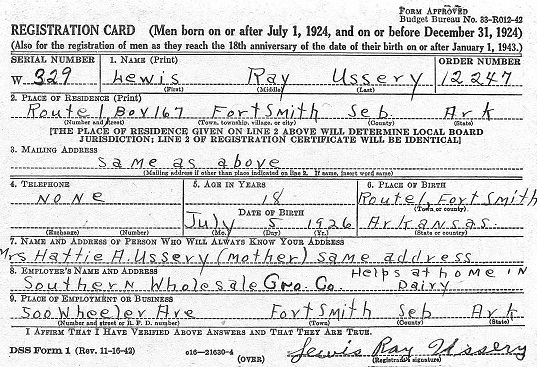 FORM APPROVED
Budget Bureau No. 33-R012-42
REGISTRATION CARD (Men born on or after July 1, 1924, and on or before December 31, 1924)
(Also for the registration of men as they reach the 18th anniversary of the date of their birth on or after January 1, 1943.)
SERIAL NUMBER 1. NAME (Print) ORDER NUMBER
W 329 Lewis Ray Ussery 12247
(First) (Middle) (Last)
2. PLACE OF RESIDENCE (Print)
Route 1, Box 167 Fort Smith Seb. Ark
(Number and street) (Town, township, village, or city) (County) (State)
[THE PLACE OF RESIDENCE GIVEN ON LINE 2 ABOVE WILL DETERMINE LOCAL BOARD
JURISDICTION; LINE 2 OF REGISTRATION CERTIFICATE WILL BE IDENTICAL]
3. MAILING ADDRESS
same as above
(Mailing address if other than place indicated on line 2. If same, insert word same)
4. TELEPHONE 5. AGE IN YEARS 6. PLACE OF BIRTH
None 18 Route 1, Fort Smith
DATE OF BIRTH (Town or county)
July 5 1926 Arkansas
(Exchange) (Number) (Mo.) (Day) (Yr.) (State or country)
7. NAME AND ADDRESS OF PERSON WHO WILL ALWAYS KNOW YOUR ADDRESS
Mrs Hattie A. Ussery (mother) same address
8. EMPLOYER'S NAME AND ADDRESS Helps at home in
Southern Wholesale Gro. Co. Dairy
9. PLACE OF EMPLOYMENT OR BUSINESS
500 Wheeler Ave Fort Smith Seb Ark
(Number and street or R. F. D. number) (Town) (County) (State)
I AFFIRM THAT I HAVE VERIFIED ABOVE ANSWERS AND THAT THEY ARE TRUE.
DSS Form 1 (Rev. 11-16-42) c16-21630-4 Lewis Ray Ussery
(OVER) (Registrant's signature)